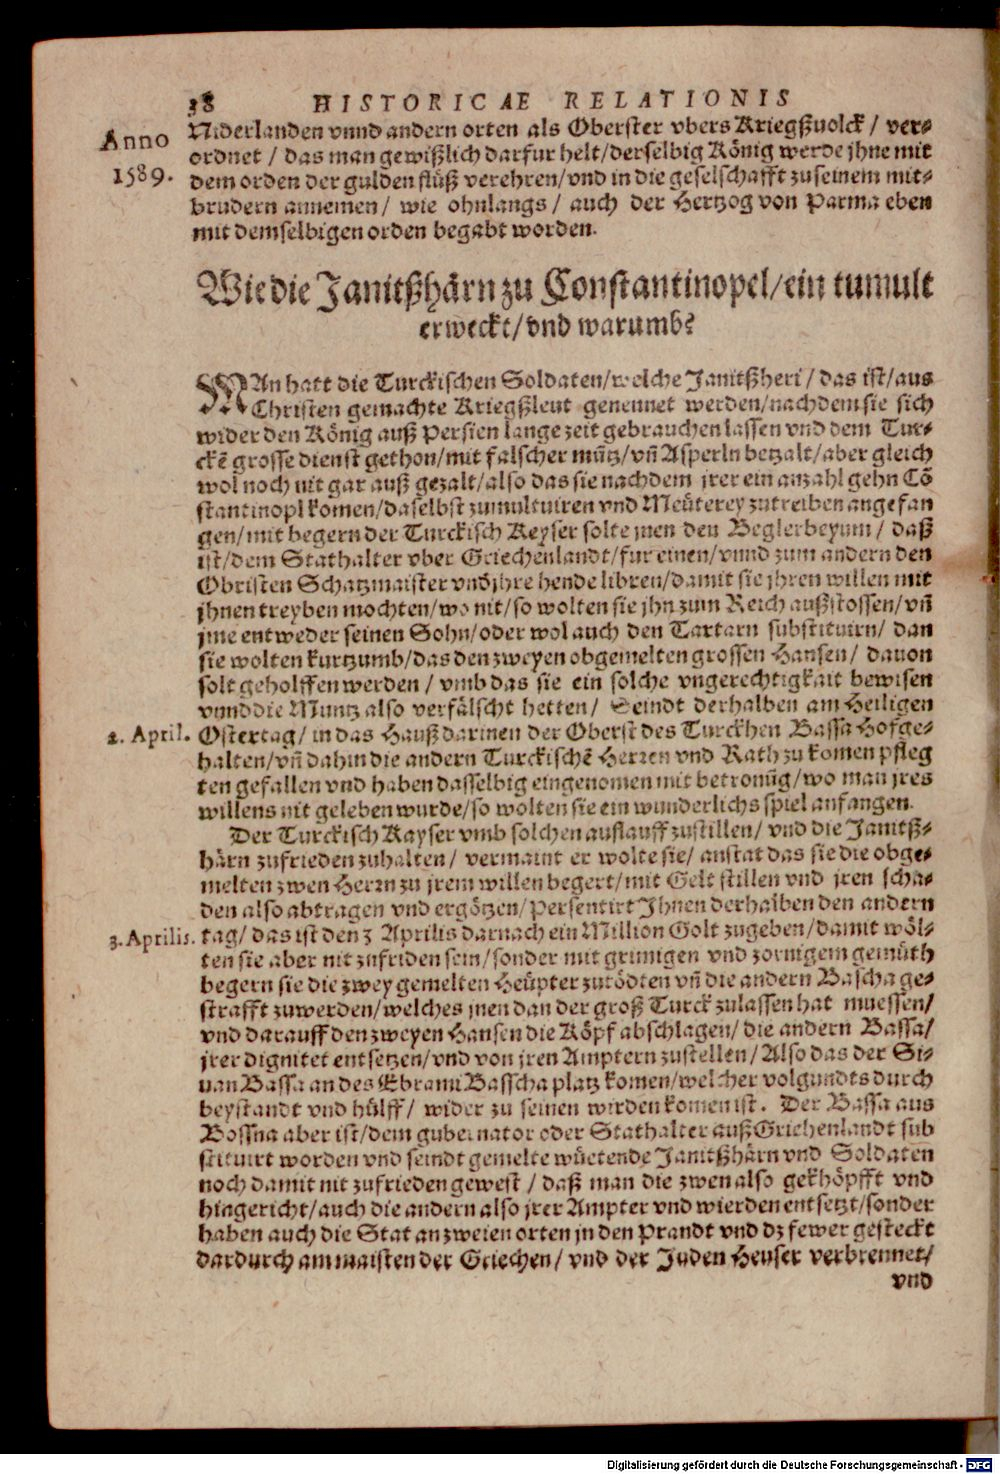 38 HISTORICAE RELATIONIS
Anno
1589.
Niderlanden vnnd andern orten als Oberster vbers Kriegßuolck / ver-
ordnet / das man gewißlich darfur helt / derselbig König werde jhne mit
dem orden der gulden flüß verehren / vnd in die geselschafft zu seinem mit-
brudern annemen / wie ohnlangs / auch der Hertzog von Parma eben
mit demselbigen orden begabt worden.
Wie die Janitßhärn zu Constantinopel / ein tumult
erweckt / vnd warumb?
MAn hatt die Turckischen Soldaten / welche Janitßheri / das ist / aus
Christen gemachte Kriegßleut genennet werden / nachdem sie sich
wider den König auß Persien lange zeit gebrauchen lassen vnd dem Tur-
ckē grosse dienst gethon / mit falscher mütz / vñ Asperln betzalt / aber gleich
wol noch nit gar auß gezalt / also das sie nachdem jrer ein anzahl gehn Cō
stantinopl komen / daselbst zumultuiren vnd Meüterey zutreiben angefan
gen / mit begern der Turckisch Keyser solte jnen den Beglerbeyum / daß
ist / dem Stathalter vber Griechenlandt / fur einen / vnnd zum andern den
Obristen Schatzmaister vnd jhre hende libren / damit sie jhren willen mit
jhnen treyben mochten / wo nit / so wolten sie jhn zum Reich außstossen / vñ
jme entweder seinen Sohn / oder wol auch den Tartarn substituirn / dan
sie wolten kurtzumb / das den zweyen obgemelten grossen Hansen / dauon
solt geholffen werden / vmb das sie ein solche vngerechtigkait bewisen
vnnd die Muntz also verfälscht hetten / Seindt derhalben am Heiligen
2. April.
Ostertag / in das Hauß darinen der Oberst des Turckhen Bassa Hofge-
halten / vñ dahin die andern Turckischē Herren vnd Rath zu komen pfleg
ten gefallen vnd haben dasselbig eingenomen mit betronũg / wo man jres
willens nit geleben wurde / so wolten sie ein wunderlichs spiel anfangen.
Der Turckisch Kayser vmb solchen auflauff zustillen / vnd die Janitß-
härn zufrieden zuhalten / vermaint er wolte sie / anstat das sie die obge-
melten zwen Herrn zu jrem willen begert / mit Gelt stillen vnd jren scha-
den also abtragen vnd ergötzen / Persentirt Jhnen derhalben den andern
3. Aprilis.
tag / das ist den 3 Aprilis darnach ein Million Golt zugeben / damit wöl-
ten sie aber nit zufriden sein / sonder mit grimigen vnd zornigem gemüth
begern sie die zwey gemelten Heüpter zutödten vñ die andern Bascha ge-
strafft zuwerden / welches jnen dan der groß Turck zulassen hat muessen /
vnd darauff den zweyen Hansen die Köpf abschlagen / die andern Bassa /
jrer dignitet entsetzen / vnd von jren Amptern zustellen / Also das der Si-
uan Bassa an des Ebraim Basscha platz komen / welcher volgundts durch
beystandt vnd hülff / wider zu seinen wirden komen ist. Der Bassa aus
Bossna aber ist / dem gubernator oder Stathalter auß Griehenlandt sub
stituirt worden vnd seindt gemelte wüetende Janitßhärn vnd Soldaten
noch damit nit zufrieden gewest / daß man die zwen also gekhöpfft vnd
hingericht / auch die andern also jrer Ampter vnd wierden entsetzt / sonder
haben auch die Stat an zweien orten jn den Prandt vnd dz fewer gesteckt
dardurch am maisten der Griechen / vnd der Juden Heuser verbrennet /
vnd
Digitalisierung gefördert durch die Deutsche Forschungsgemeinschaft - DFG